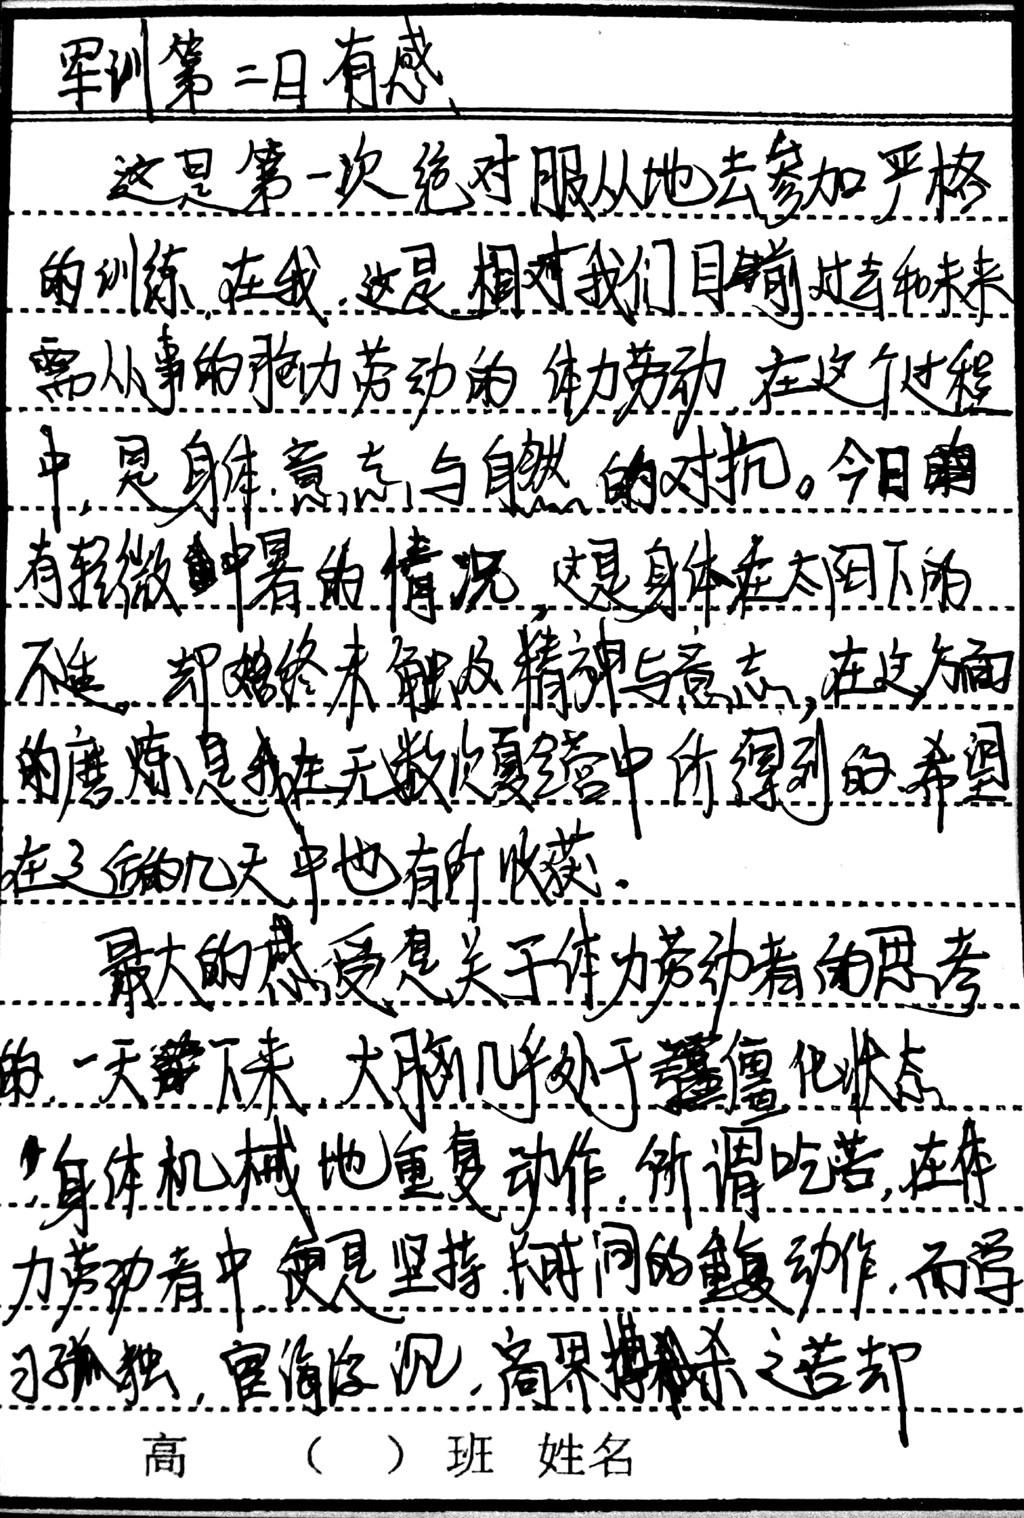 军训第二日有感
这是第一次绝对服从地去参加严格
的训练,在我,这是相对我们目前过去和未来
需从事的脑力劳动的体力劳动,在这个过程
中,是身体,意志与自然的对抗。今日
有轻微中暑的情况,这是身体在太阳下的
不适。却始终未触及精神与意志,在这方面
的磨炼是我在无数次夏令营中所得到的,希望
在之后的几天中也有所收获.
最大的感受是关于体力劳动者的思考
的,一天下来,大脑几乎处于僵化状态
,身体机械地重复动作,所谓吃苦,在体
力劳动者中,便是坚持长时间的重复动作,而学
习孤独,宦海浮沉,商界搏杀之苦却
高 ( )班 姓名